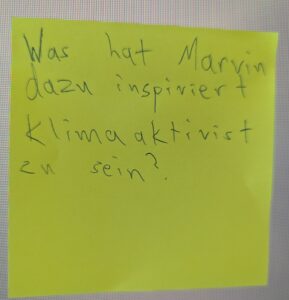 Was hat Marvin
dazu inspiriert
Klimaaktivist
zu sein?